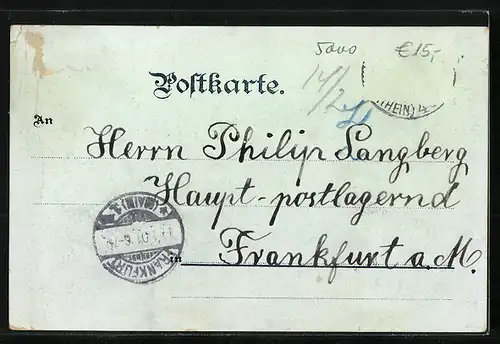 5000 €15,-
Postkarte.
14/2
(RHEIN)
An
Herrn Philip Langberg
Haupt-postlagernd
in Frankfurt a. M.
(MAIN) 1.
FRANKFURT